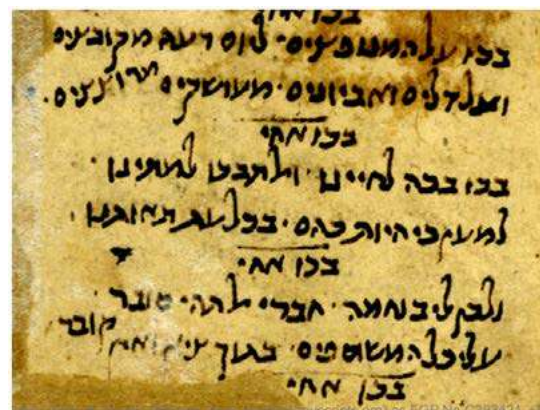 בכו אחי
בכו על המנופצים . ליום רעה מקובצים
ועל דלים ואביונים . מעושקים ורצוצים .
בכו אחי
בכו בכה לחיינו . ואל תבכו למתינו .
למען כי היות כהם . בכל עת תאותנו .
בכו אחי
בנחמה . חברי אל תהי סובר
על כל המשוספים . בתוך ציון ואין קובר
בכו אחי